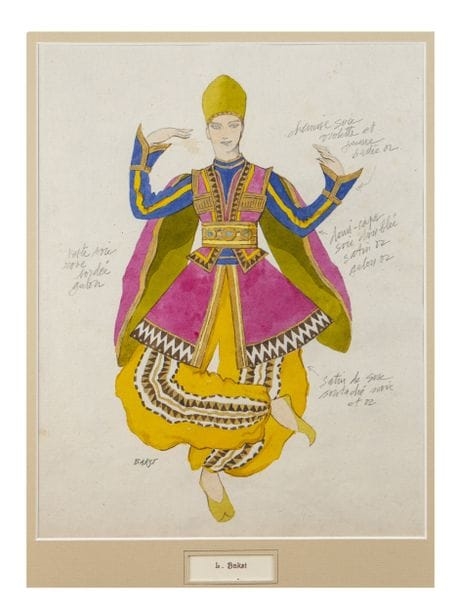 chemise soie
violette et
jaune
bordée or
demi-cape
soie doublée
satin or
galon or
veste soie
rose
bordée
galon
satin de soie
soutaché noir
et or
BAKST
L. Bakst